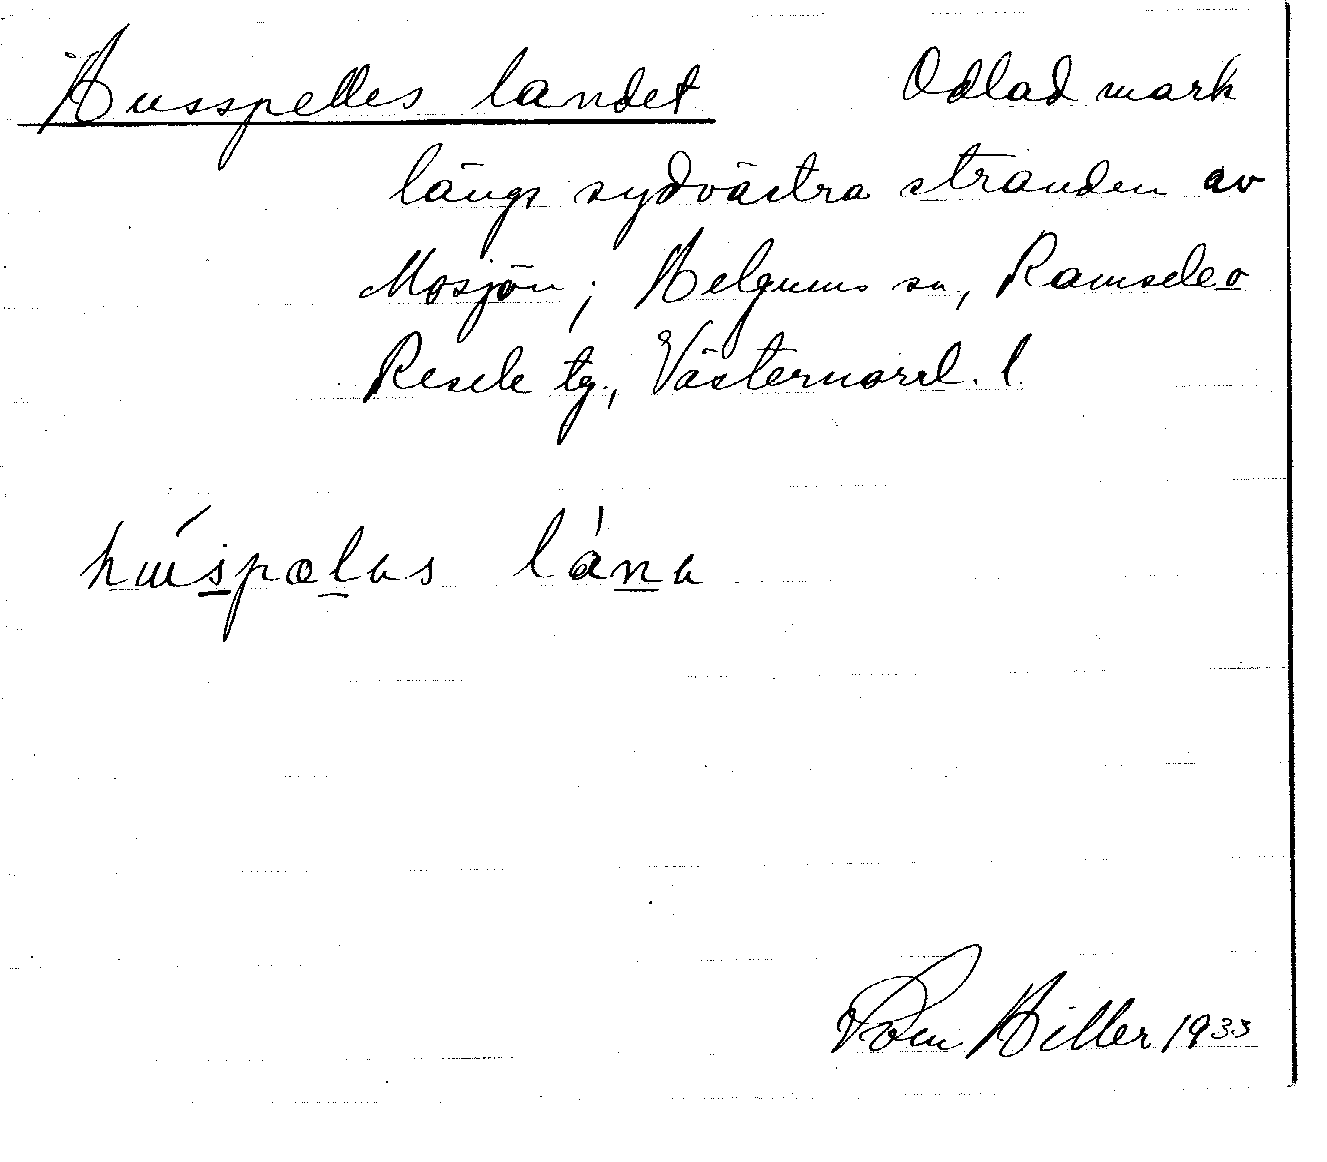 Husspelles landet Odlad mark
längs sydvästra stranden av
Mosjön; Helgums sn, Ramsele o
Resele tg., Västernorrl. l
huspelas lána
Hiller 1933